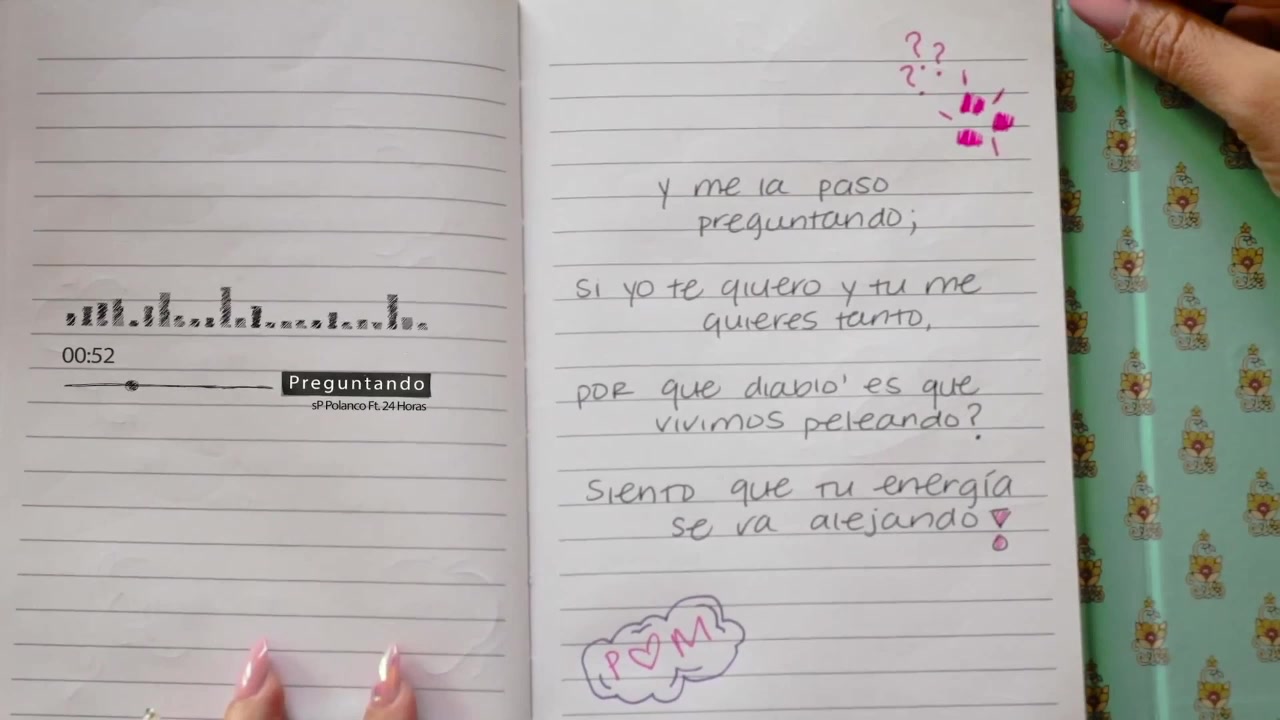 00:52
Preguntando
sP Polanco Ft. 24 Horas
? ?
?
y me la paso
preguntando;
si yo te quiero y tu me
quieres tanto,
por que diablo' es que
vivimos peleando?
siento que tu energía
se va alejando!
P♡M